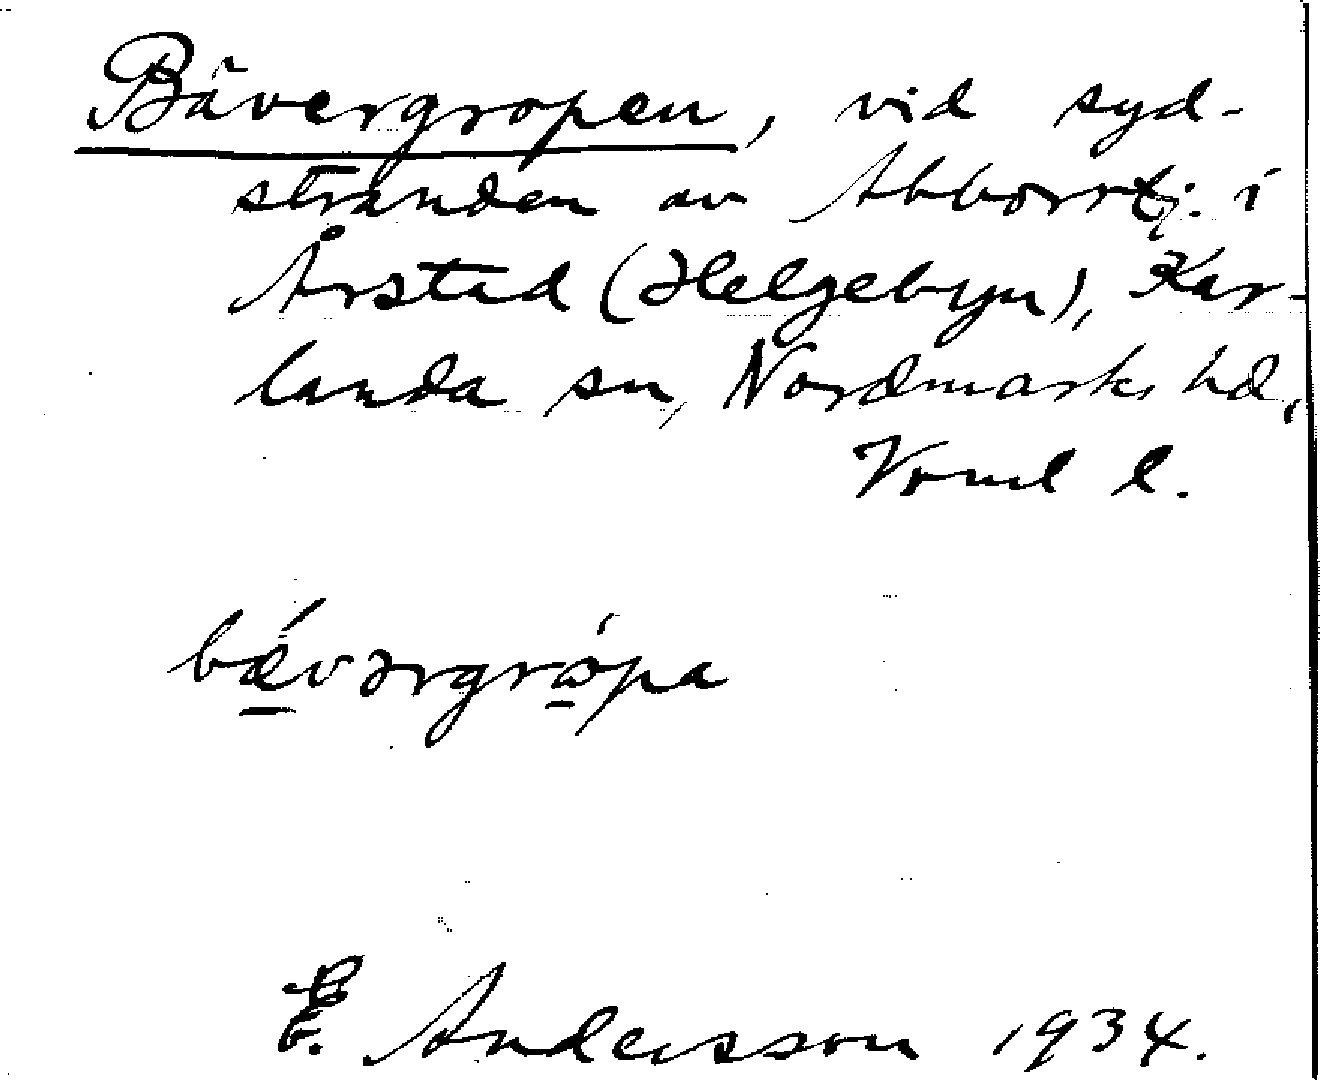 Bävergropen, vid syd-
stranden av Abborrtj. i
Årstad (Helgebyn), Kar-
landa sn, Nordmarks hd,
Vrml l.
bǽvərgrǿpa
E. Andersson 1934.